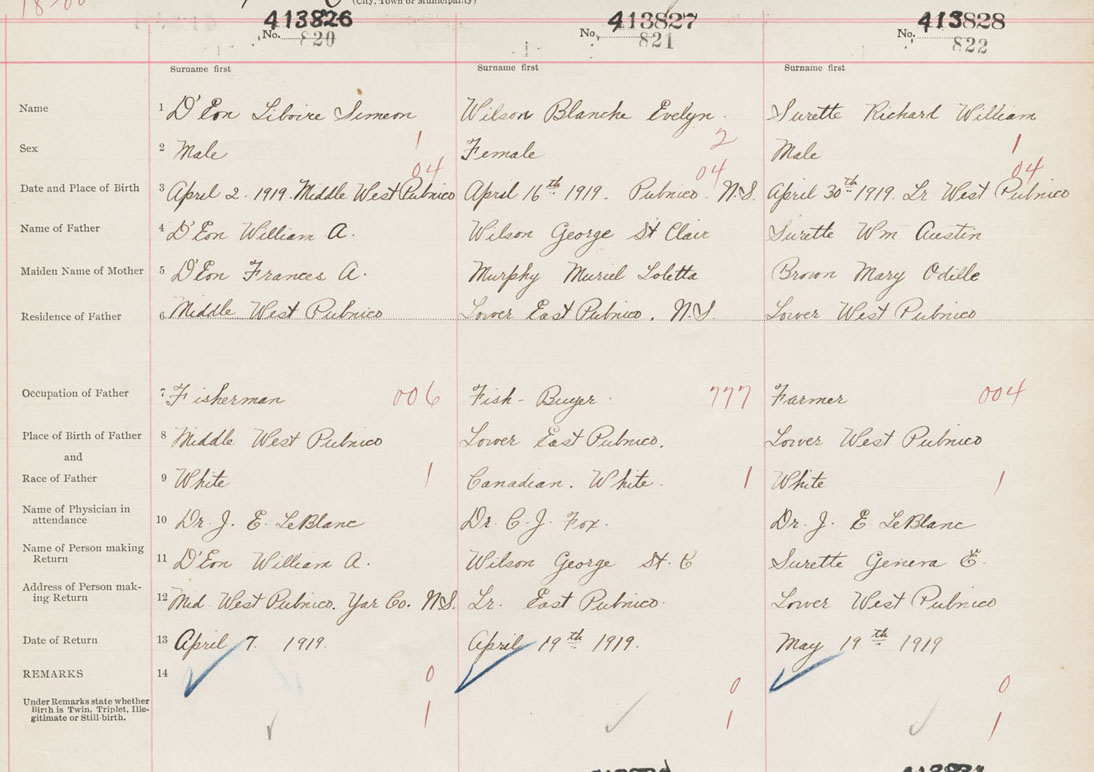 (City, Town or Municipality)
413826 413827 413828
No. 820 No. 821 No. 822
Surname first Surname first Surname first
Name 1 D'Eon Liboire Simeon Wilson Blanche Evelyn. Surette Richard William
Sex 2 Male 1 Female 2 Male 1
04 04 04
Date and Place of Birth 3 April 2. 1919. Middle West Pubnico April 16th 1919. Pubnico. N.S. April 30th 1919. Lr West Pubnico
Name of Father 4 D'Eon William A. Wilson George St Clair Surette Wm Austin
Maiden Name of Mother 5 D'Eon Frances A. Murphy Muriel Loletta Brown Mary Odille
Residence of Father 6 Middle West Pubnico Lower East Pubnico. N.S. Lower West Pubnico
Occupation of Father 7 Fisherman 006 Fish-Buyer 777 Farmer 004
Place of Birth of Father 8 Middle West Pubnico Lower East Pubnico. Lower West Pubnico
and
Race of Father 9 White 1 Canadian. White. 1 White 1
Name of Physician in
attendance 10 Dr. J. E. LeBlanc Dr. C. J. Fox. Dr. J. E LeBlanc
Name of Person making
Return 11 D'Eon William A. Wilson George St. C Surette Geneva E.
Address of Person mak-
ing Return 12 Mid. West Pubnico. Yar Co. N.S. Lr. East Pubnico. Lower West Pubnico
Date of Return 13 April 7. 1919. April 19th 1919. May 19th 1919
REMARKS 14 0 0 0
Under Remarks state whether
Birth is Twin, Triplet, Ille-
gitimate or Still-birth. 1 1 1